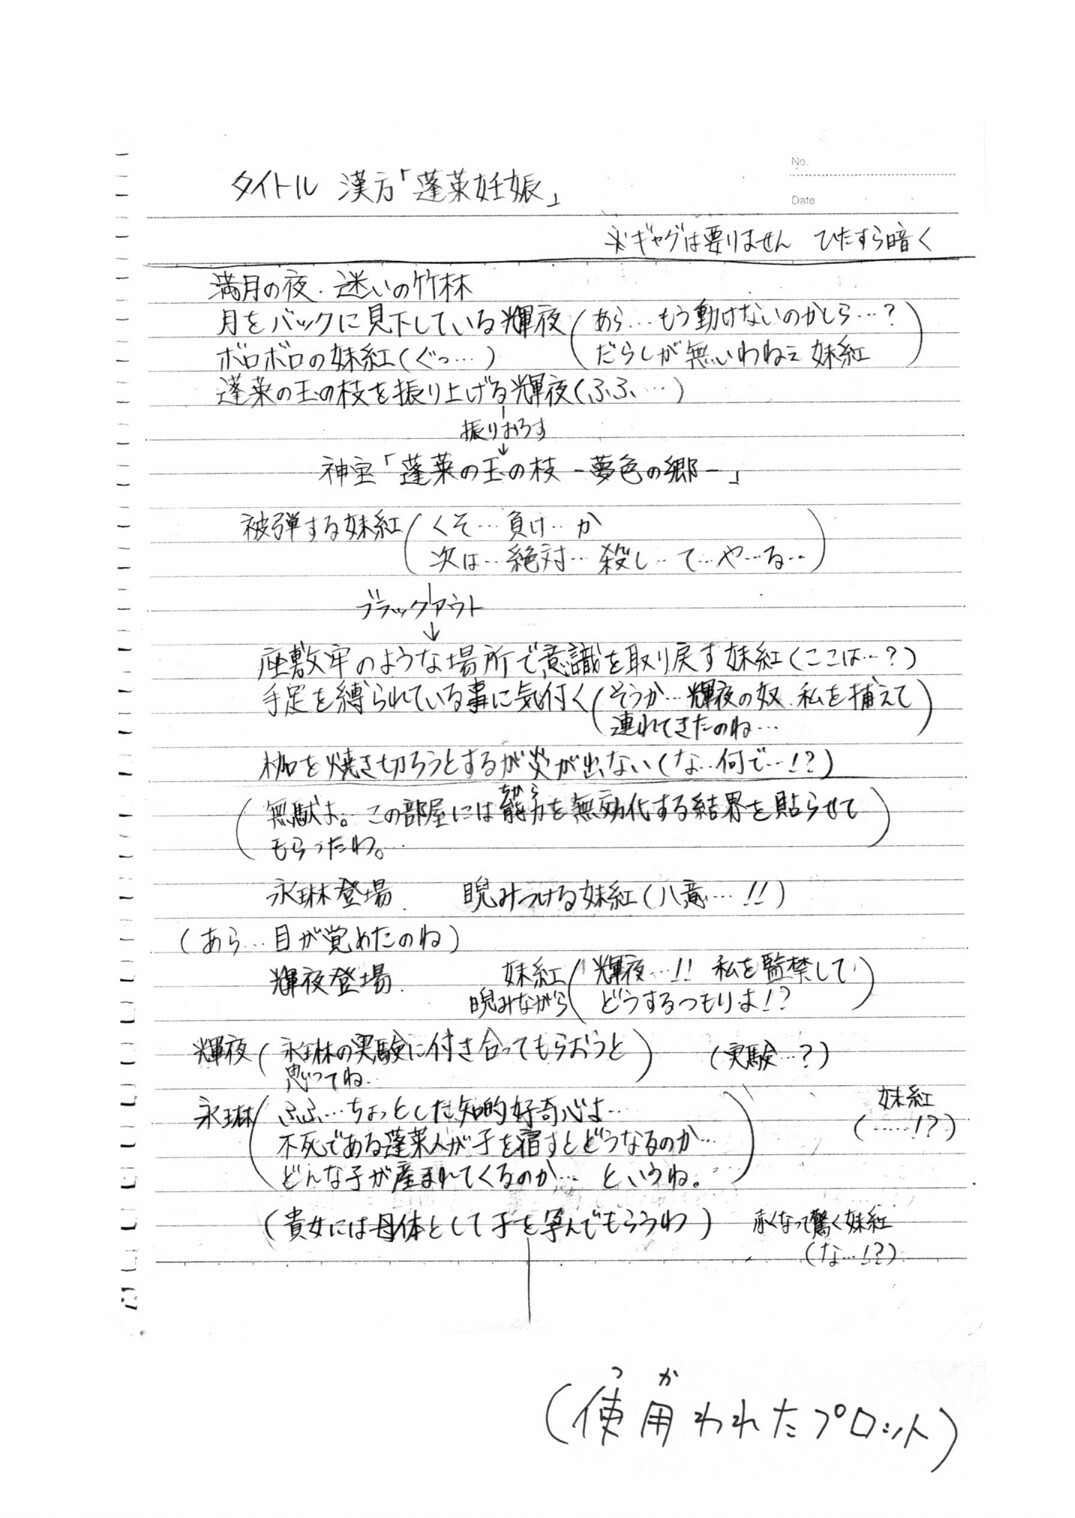 No.
Date
タイトル 漢方「蓬莱妊娠」
※ギャグは要りません ひたすら暗く
満月の夜・迷いの竹林
月をバックに見下している輝夜(あら…もう動けないのかしら…?
だらしが無いわねぇ妹紅)
ボロボロの妹紅(ぐっ…)
蓬莱の玉の枝を振り上げる輝夜(ふふ…)
振りおろす
神宝「蓬莱の玉の枝 -夢色の郷-」
被弾する妹紅(くそ…負け…か
次は…絶対…殺し…て…や…る…)
ブラックアウト
座敷牢のような場所で意識を取り戻す妹紅(ここは…?)
手足を縛られている事に気付く(そうか…輝夜の奴、私を捕えて
連れてきたのね…)
枷を焼き切ろうとするが炎が出ない(な…何で…!?)
(無駄よ。この部屋には能力を無効化する結界を貼らせて
ちから
もらったわ。)
永琳登場 睨みつける妹紅(八意…!!)
(あら…目が覚めたのね)
輝夜登場 妹紅
睨みながら(輝夜…!! 私を監禁して
どうするつもりよ!?)
輝夜(永琳の実験に付き合ってもらおうと
思ってね…) (実験…?)
永琳(ふふ…ちょっとした知的好奇心よ…
不死である蓬莱人が子を宿すとどうなるのか…
どんな子が産まれてくるのか… というね。)
妹紅
(……!?)
(貴女には母体として子を孕んでもらうわ) 赤くなって驚く妹紅
(な…!?)
つか
(使用われたプロット)